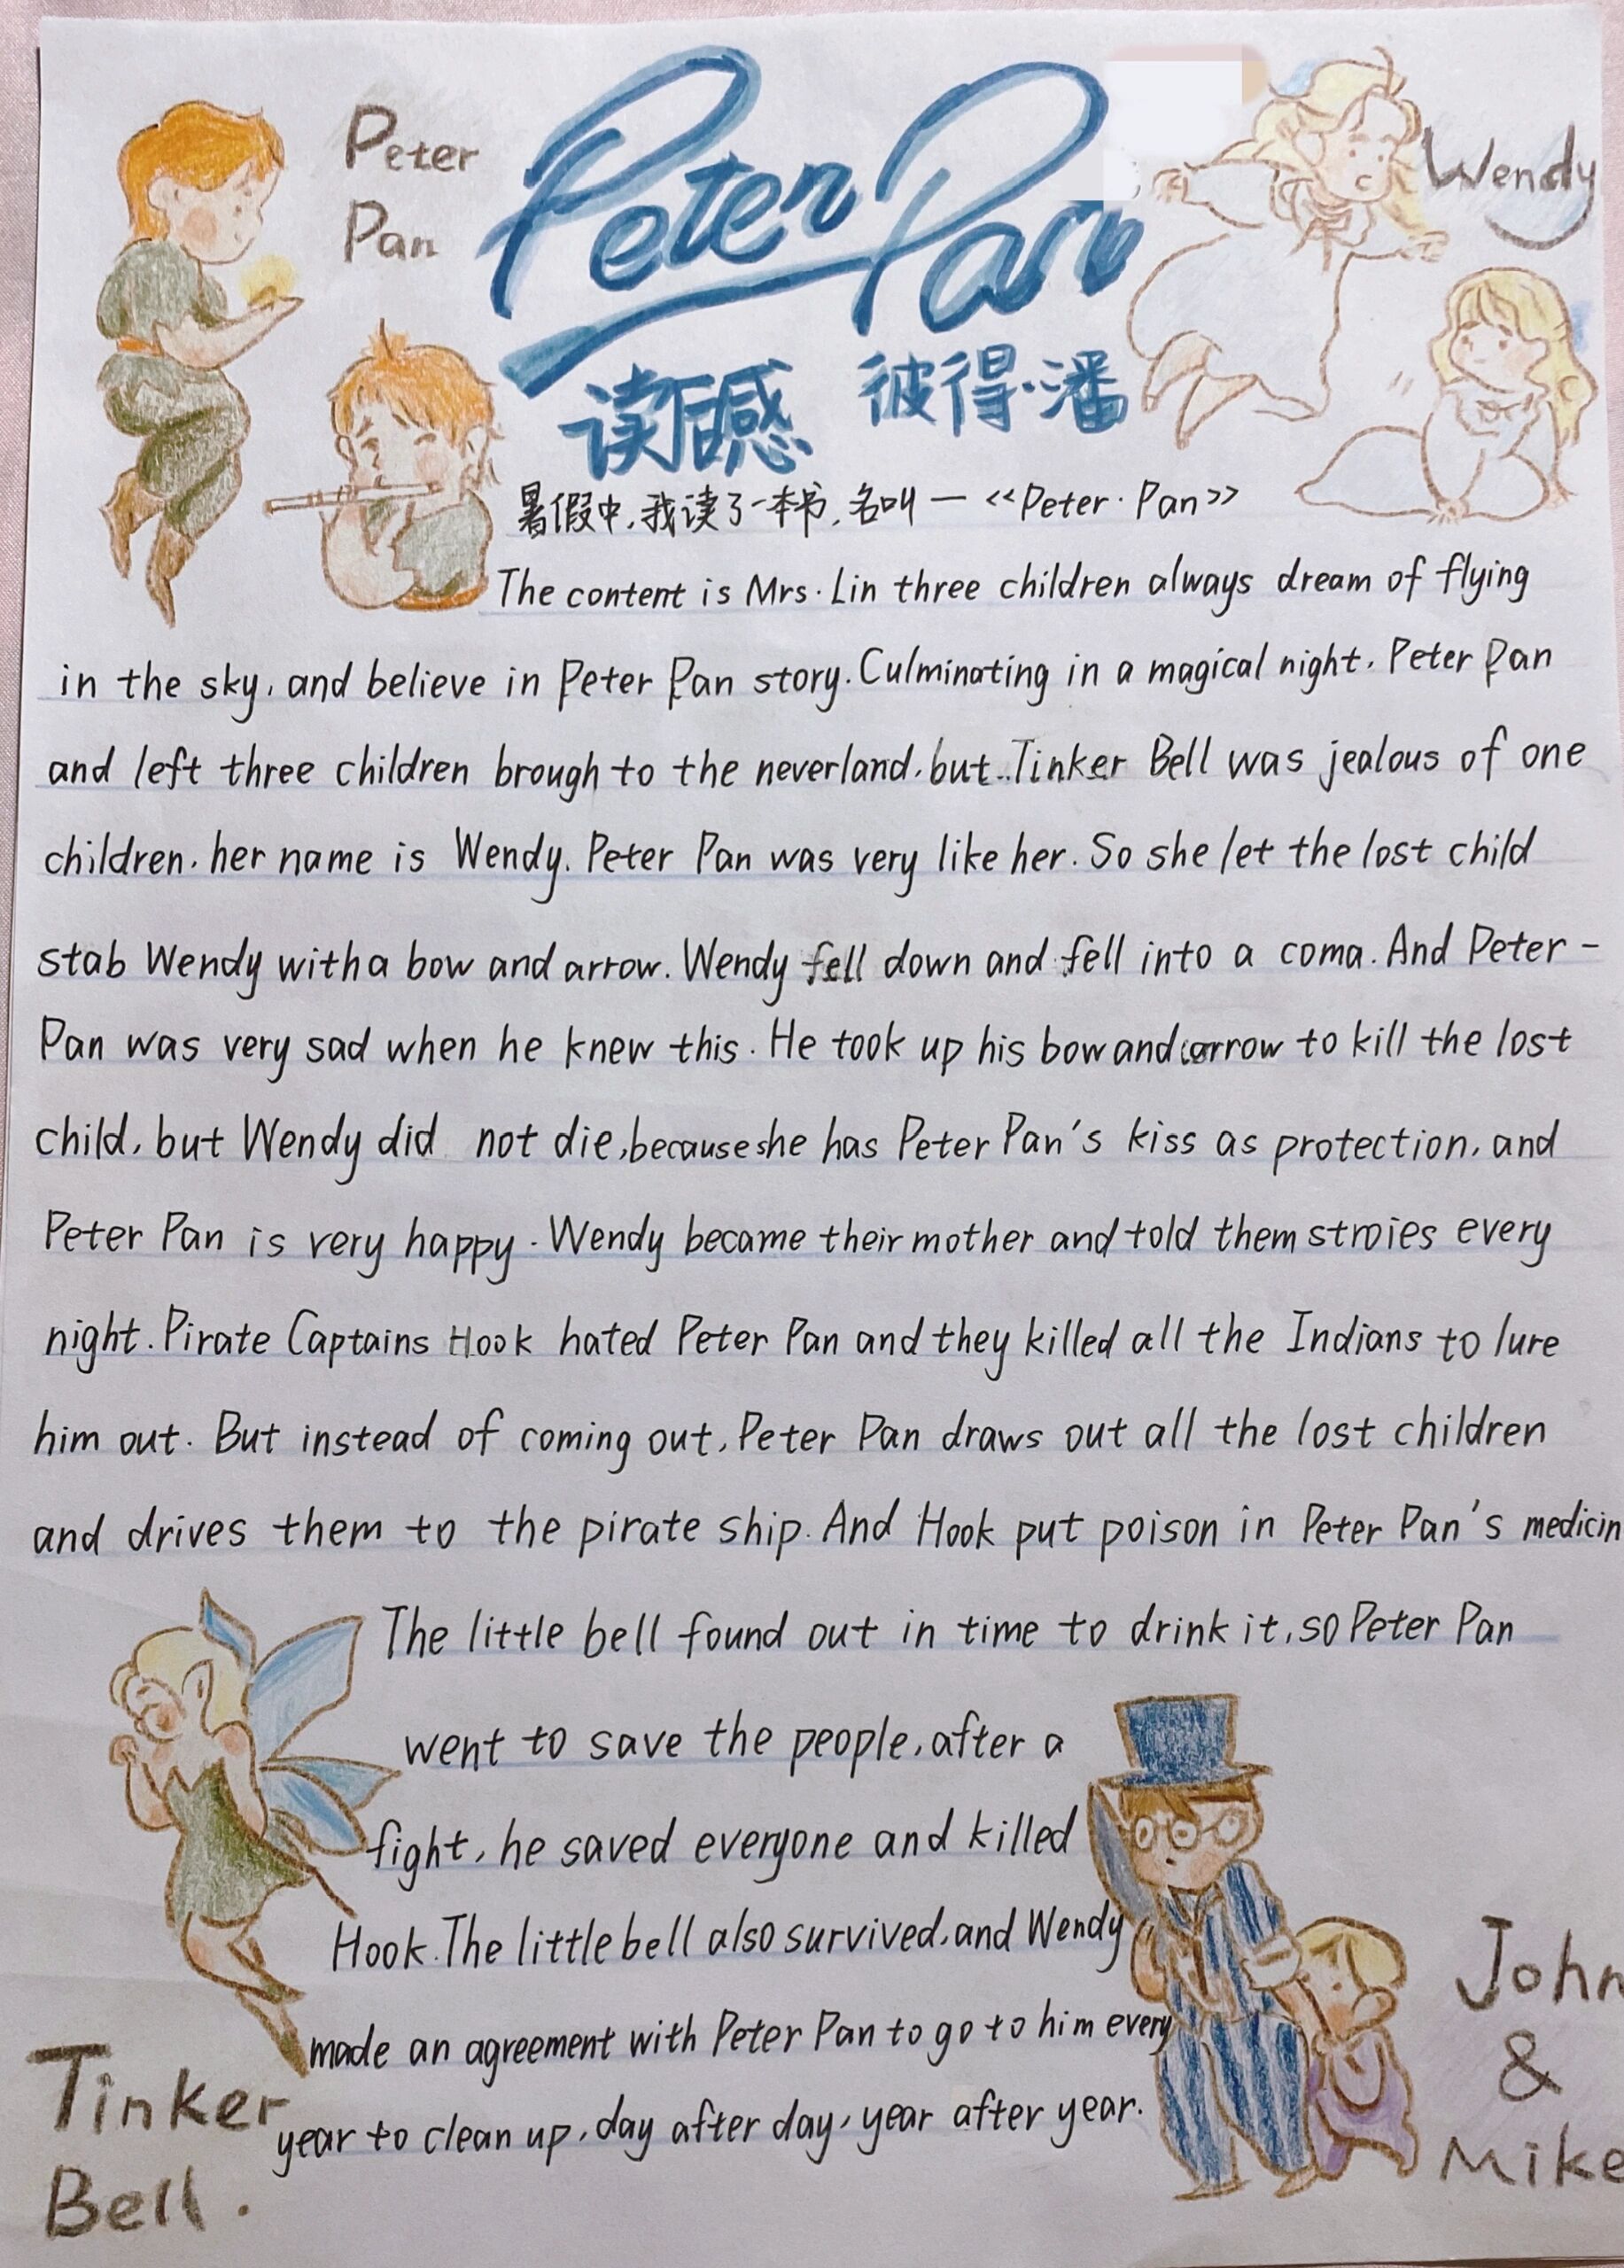 Peter
Pan
Peter Pan
Wendy
读后感 彼得·潘
暑假中,我读了一本书,名叫—《Peter·Pan》
The content is Mrs. Lin three children always dream of flying
in the sky, and believe in Peter Pan story. Culminating in a magical night, Peter Pan
and left three children brough to the neverland, but Tinker Bell was jealous of one
children, her name is Wendy. Peter Pan was very like her. So she let the lost child
stab Wendy with a bow and arrow. Wendy fell down and fell into a coma. And Peter-
Pan was very sad when he knew this. He took up his bow and arrow to kill the lost
child, but Wendy did not die, because she has Peter Pan's kiss as protection, and
Peter Pan is very happy. Wendy became their mother and told them stroies every
night. Pirate Captains Hook hated Peter Pan and they killed all the Indians to lure
him out. But instead of coming out, Peter Pan draws out all the lost children
and drives them to the pirate ship. And Hook put poison in Peter Pan's medicin
The little bell found out in time to drink it, so Peter Pan
went to save the people, after a
fight, he saved everyone and killed
Hook. The little bell also survived, and Wendy
made an agreement with Peter Pan to go to him every
year to clean up, day after day, year after year.
Tinker
Bell.
John
&
Mike